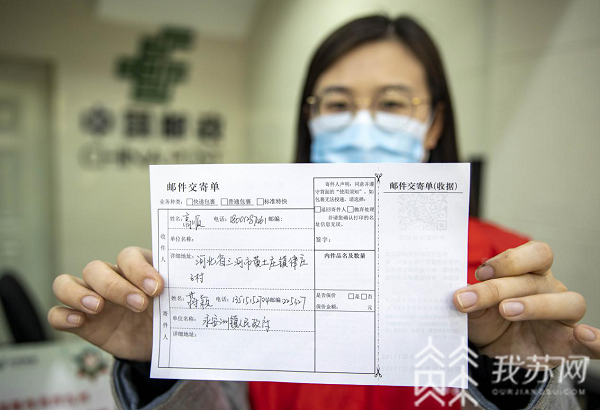 中国邮政
CHINA POST
邮件交寄单
邮件交寄单(收据)
业务种类: □快递包裹 □普通包裹 □标准特快
寄件人声明:同意并遵
守背面的"使用须知"。如
包裹无法投递,请选择:
□退回寄件人□抛弃处理
并请您确认打印的名
址信息无误。
签字:
收件人
姓名:高顺 电话: 邮编:
单位名称:
详细地址:河北省三河市黄土庄镇
村
内件品名及数量
寄件人
姓名:蒋颖 电话: 邮编:225327
单位名称:永安洲镇人民政府
详细地址:
是否保价 □是□否
保价金额: 元
我苏网
OURJIANGSU.COM